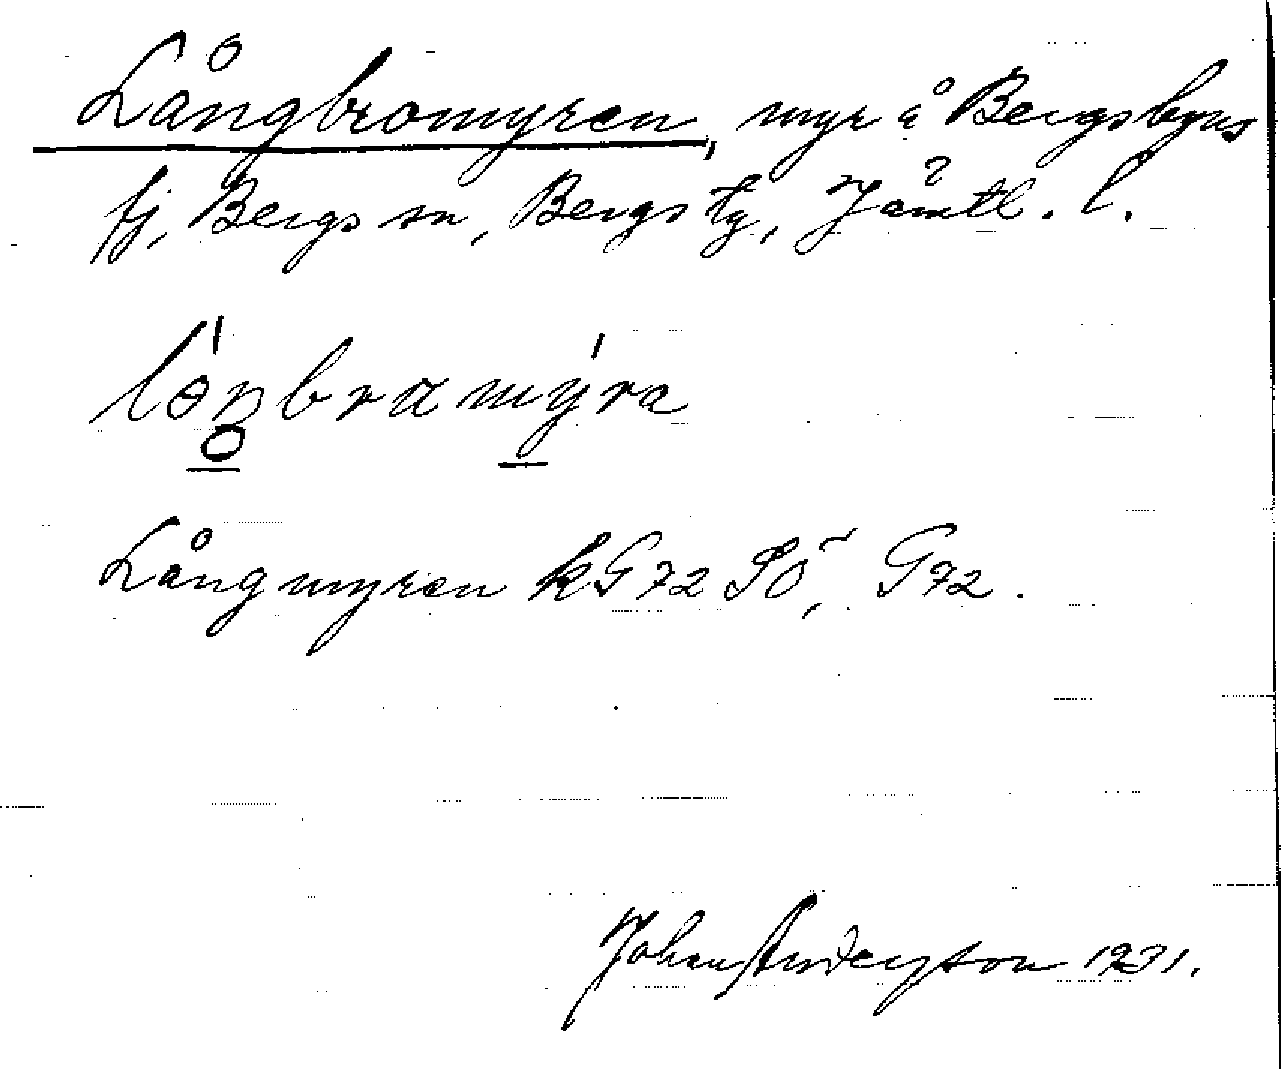 Långbromyren, myr å Bergsbyns
fj, Bergs sn, Bergs tg, Jämtl. l.
Långmyren kG72 SÖ, G72.
Johan Anderson 1931.